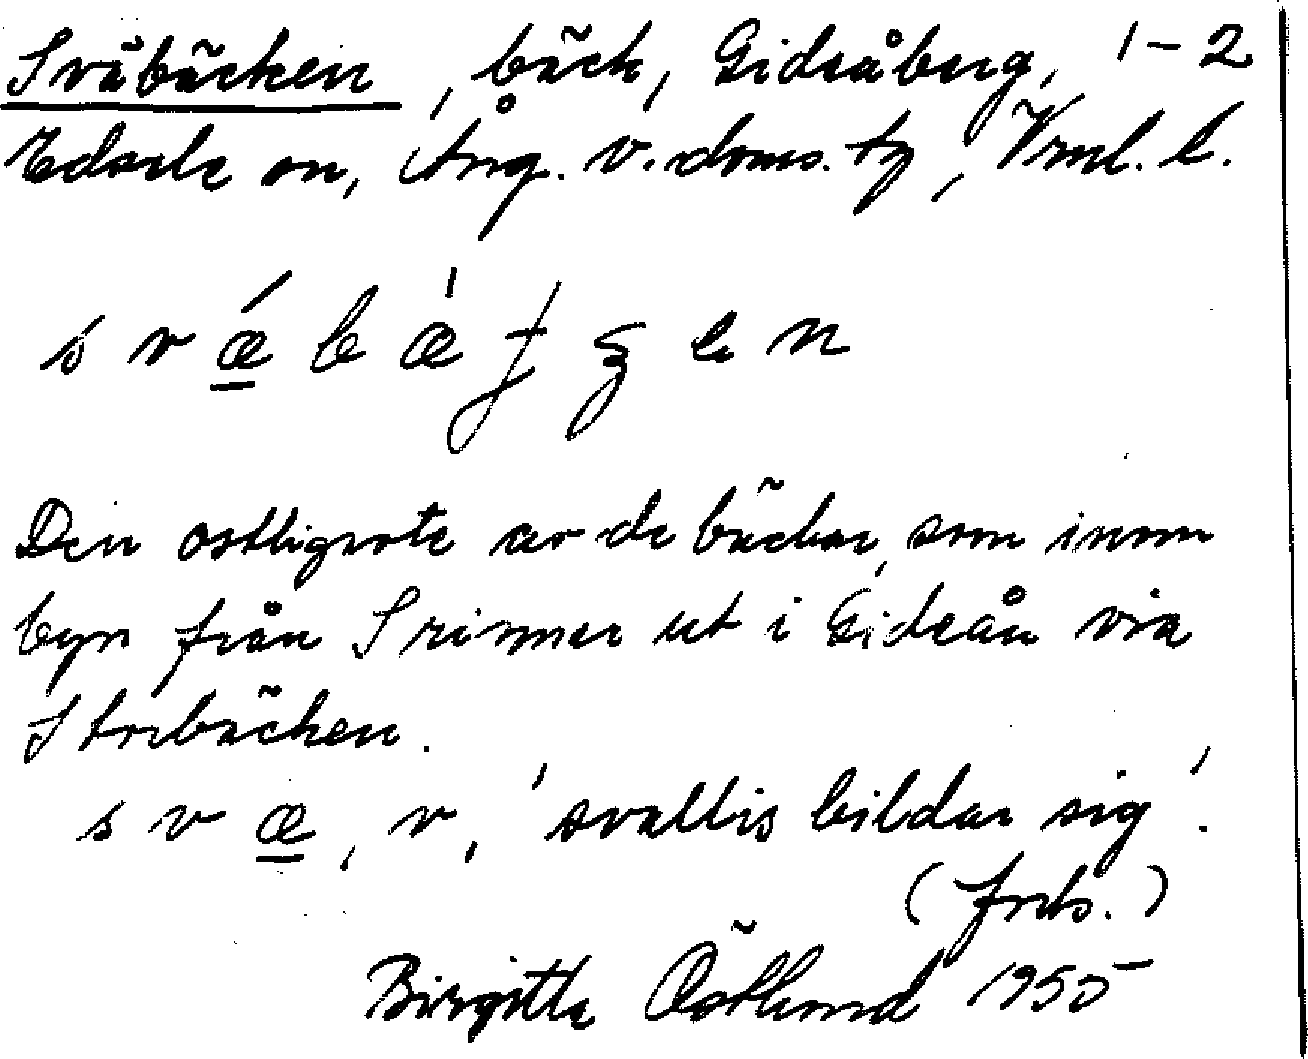 Sväbäcken, bäck, Gideåberg, 1-2
Edsele sn, Ång. v. doms. tg, Vnml. l.
s v ǽ b æ̀ ʄ ʒ e n
Den ostligaste av de bäckar, som inom
byn från S rinner ut i Gideån via
Storbäcken.
s v æ, v, 'svallis bildar sig'.
(frib.)
Birgitta Östlund 1955